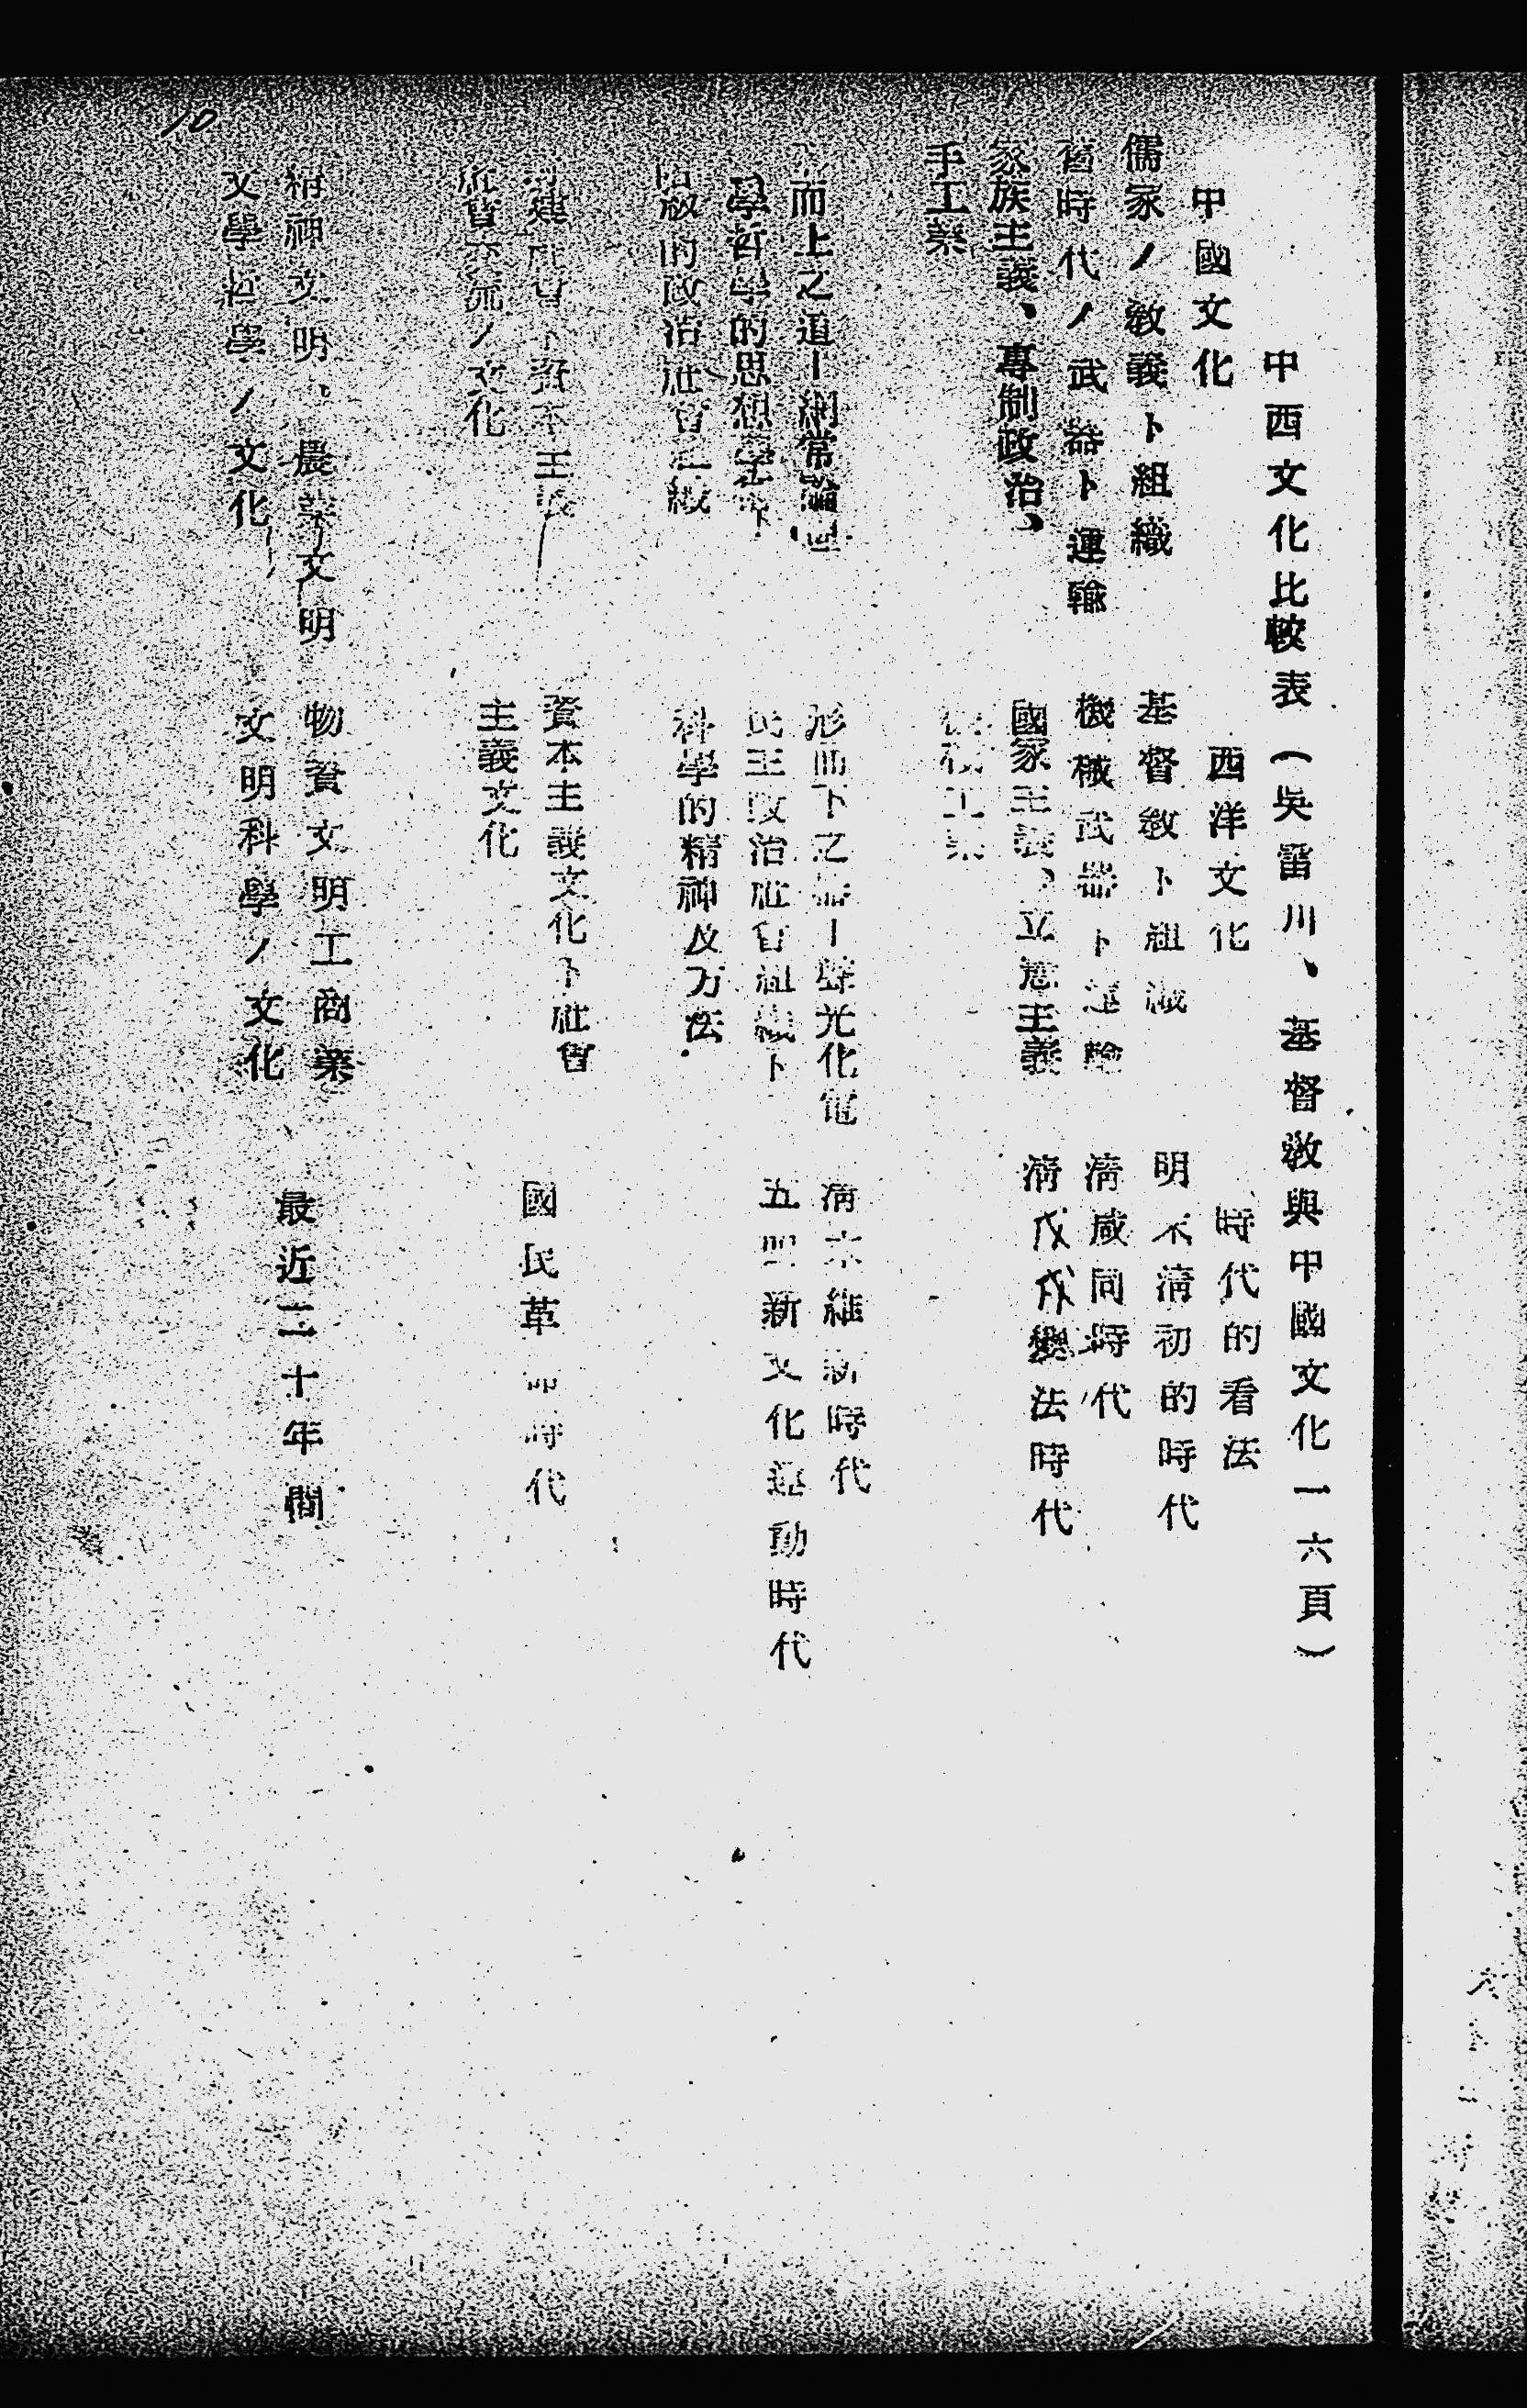 中西文化比較表（吳雷川、基督教與中國文化一六頁）
中國文化
西洋文化
時代的看法
儒家ノ教義ト組織
基督教ト組織
明末清初的時代
舊時代ノ武器ト運輸
機械武器ト運輸
清咸同時代
家族主義、專制政治、
國家主義、立憲主義
清戊戌變法時代
手工業
工業
而上之道ー綱常論
形而下之器ー聲光化電
清末維新時代
學哲學的思想學術ト
民主政治社會組織ト
五四新文化運動時代
的政治社會組織
科學的精神及方法
封建社會ト資本主義
資本主義文化ト社會
國民革命時代
交流ノ文化
主義文化
精神文明、農業文明
物質文明工商業
最近二十年間
文學哲學ノ文化
文明科學ノ文化
10